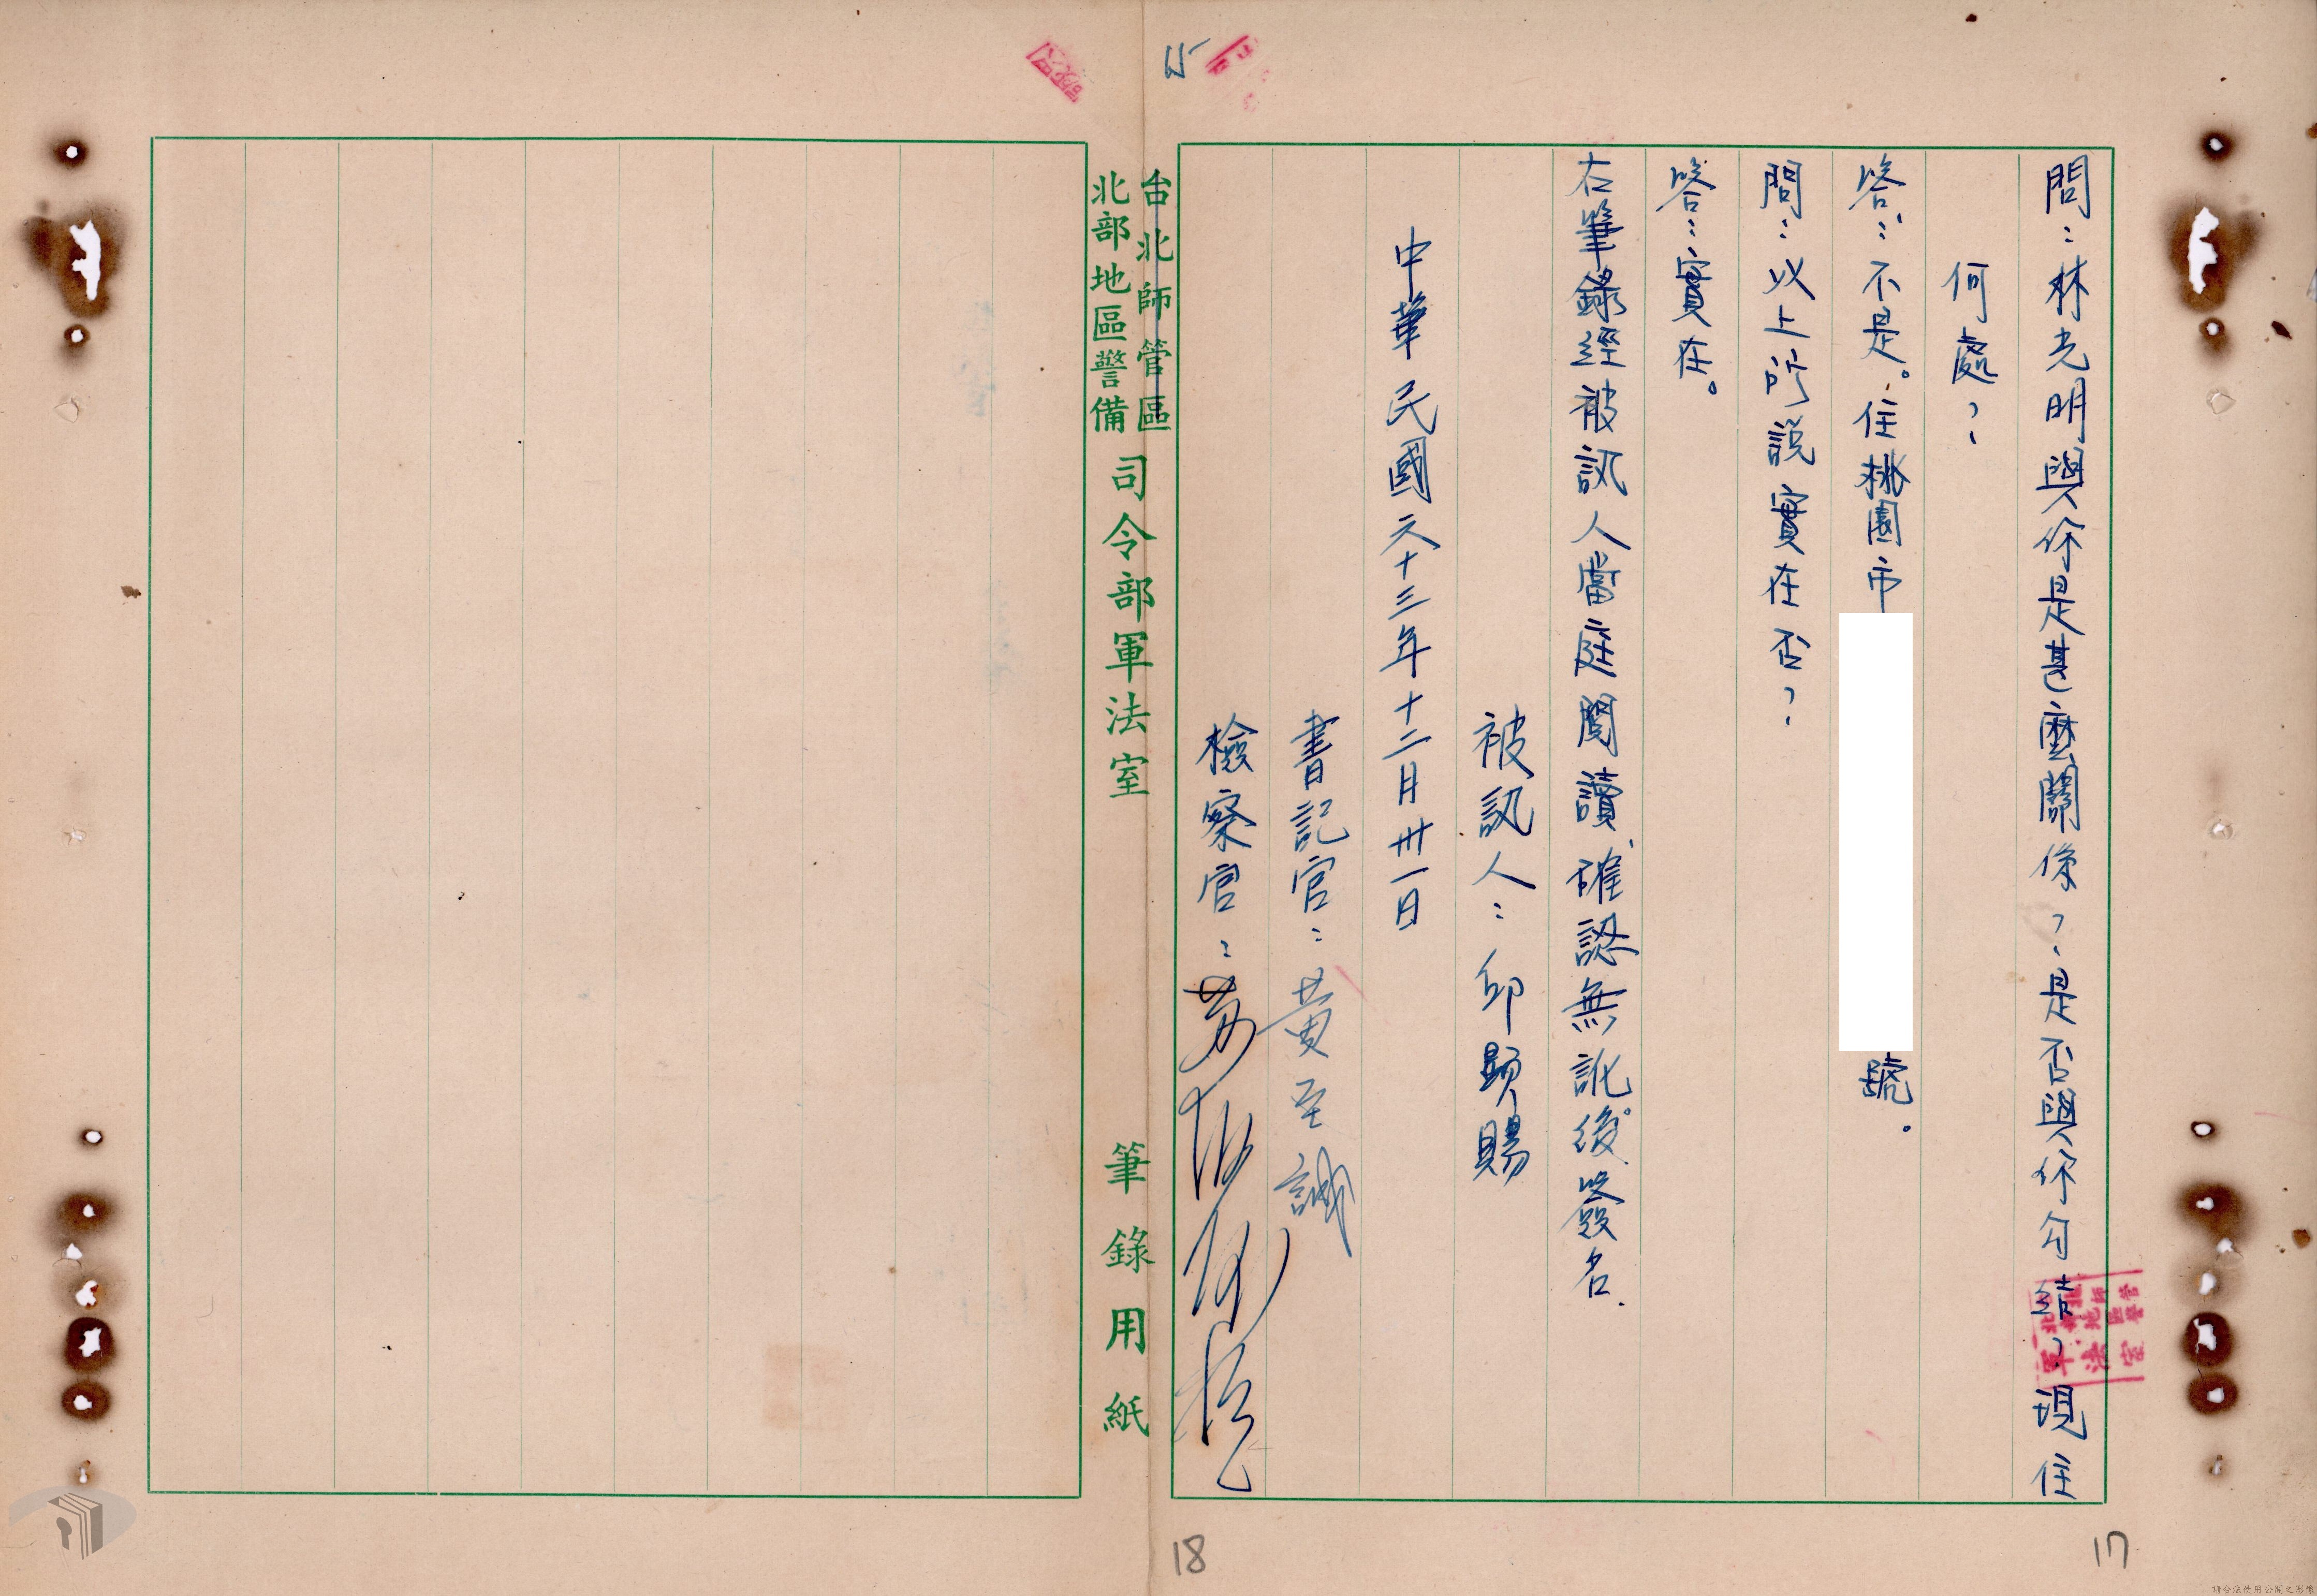 問：林光明與你是甚麼關係？是否與你勾結？現住
何處？
答：不是。住桃園市
號。
問：以上所說實在否？
答：實在。
右筆錄經被訊人當庭閱讀確認無訛後簽名.
被訊人：邱顯賜
中華民國六十三年十二月卅一日
書記官：黃至誠
檢察官：
台北師管區
北部地區警備
司令部軍法室
筆錄用紙
15
17
18
請合法使用公開之影像